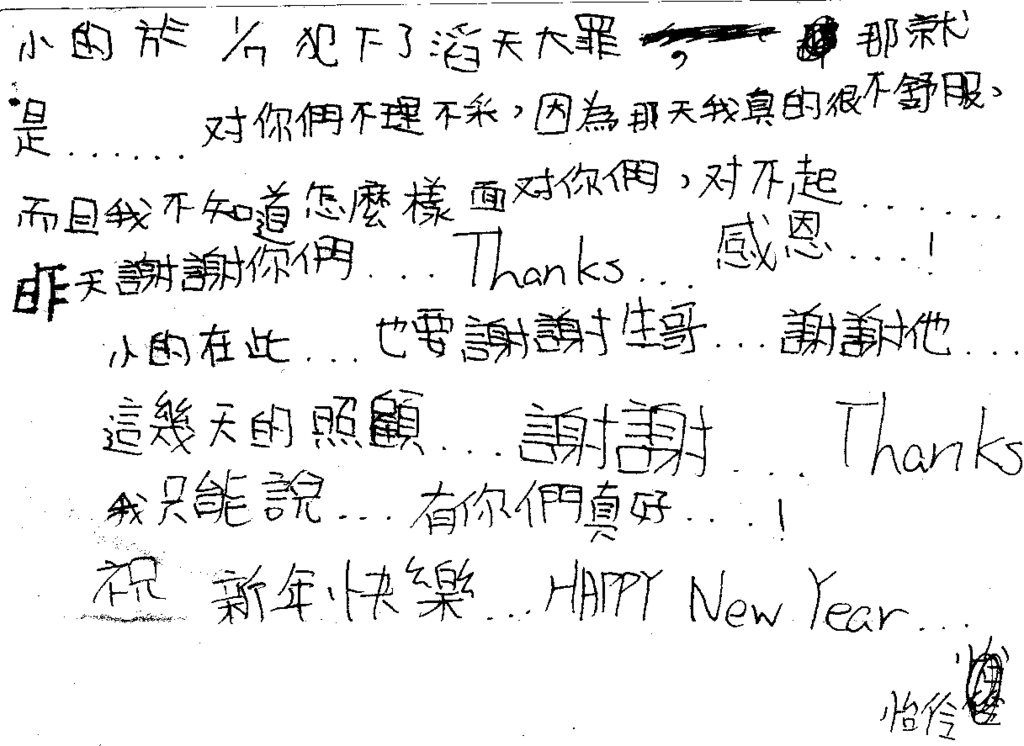 小的於 1/7 犯下了滔天大罪，那就
是...... 对你們不理不釆，因為那天我真的很不舒服、
而且我不知道怎麼樣面对你們，对不起......
昨天謝謝你們... Thanks... 感恩...!
小的在此... 也要謝謝生哥... 謝謝他...
這幾天的照顧... 謝謝.... Thanks
我只能說... 有你們真好....!
祝 新年快樂... HAPPY New Year...
怡伶